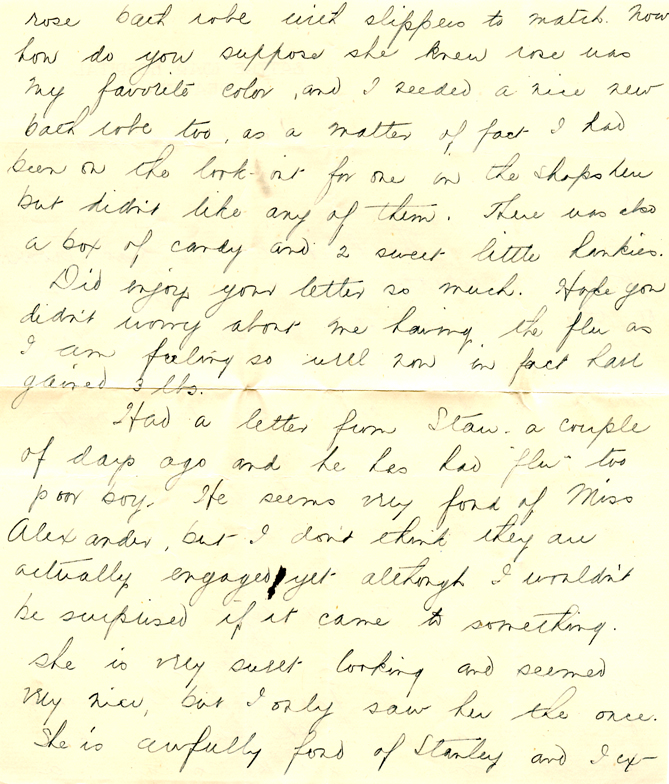 rose bath robe with slippers to match. Now
how do you suppose she knew rose was
my favorite color, and I needed a nice new
bath robe too, as a matter of fact I had
been on the look-out for one in the shops here
but didn't like any of them. There was also
a box of candy and 2 sweet little hankies.
Did enjoy your letter so much. Hope you
didn't worry about me having the flu as
I am feeling so well now in fact have
gained 3 lbs.
Had a letter from Stan. a couple
of days ago and he has had "flu" too
poor boy. He seems very fond of Miss
Alexander, but I don't think they are
actually engaged yet although I wouldn't
be surprised if it came to something.
She is very sweet looking and seemed
very nice, but I only saw her the once.
She is awfully fond of Stanley and I ex-